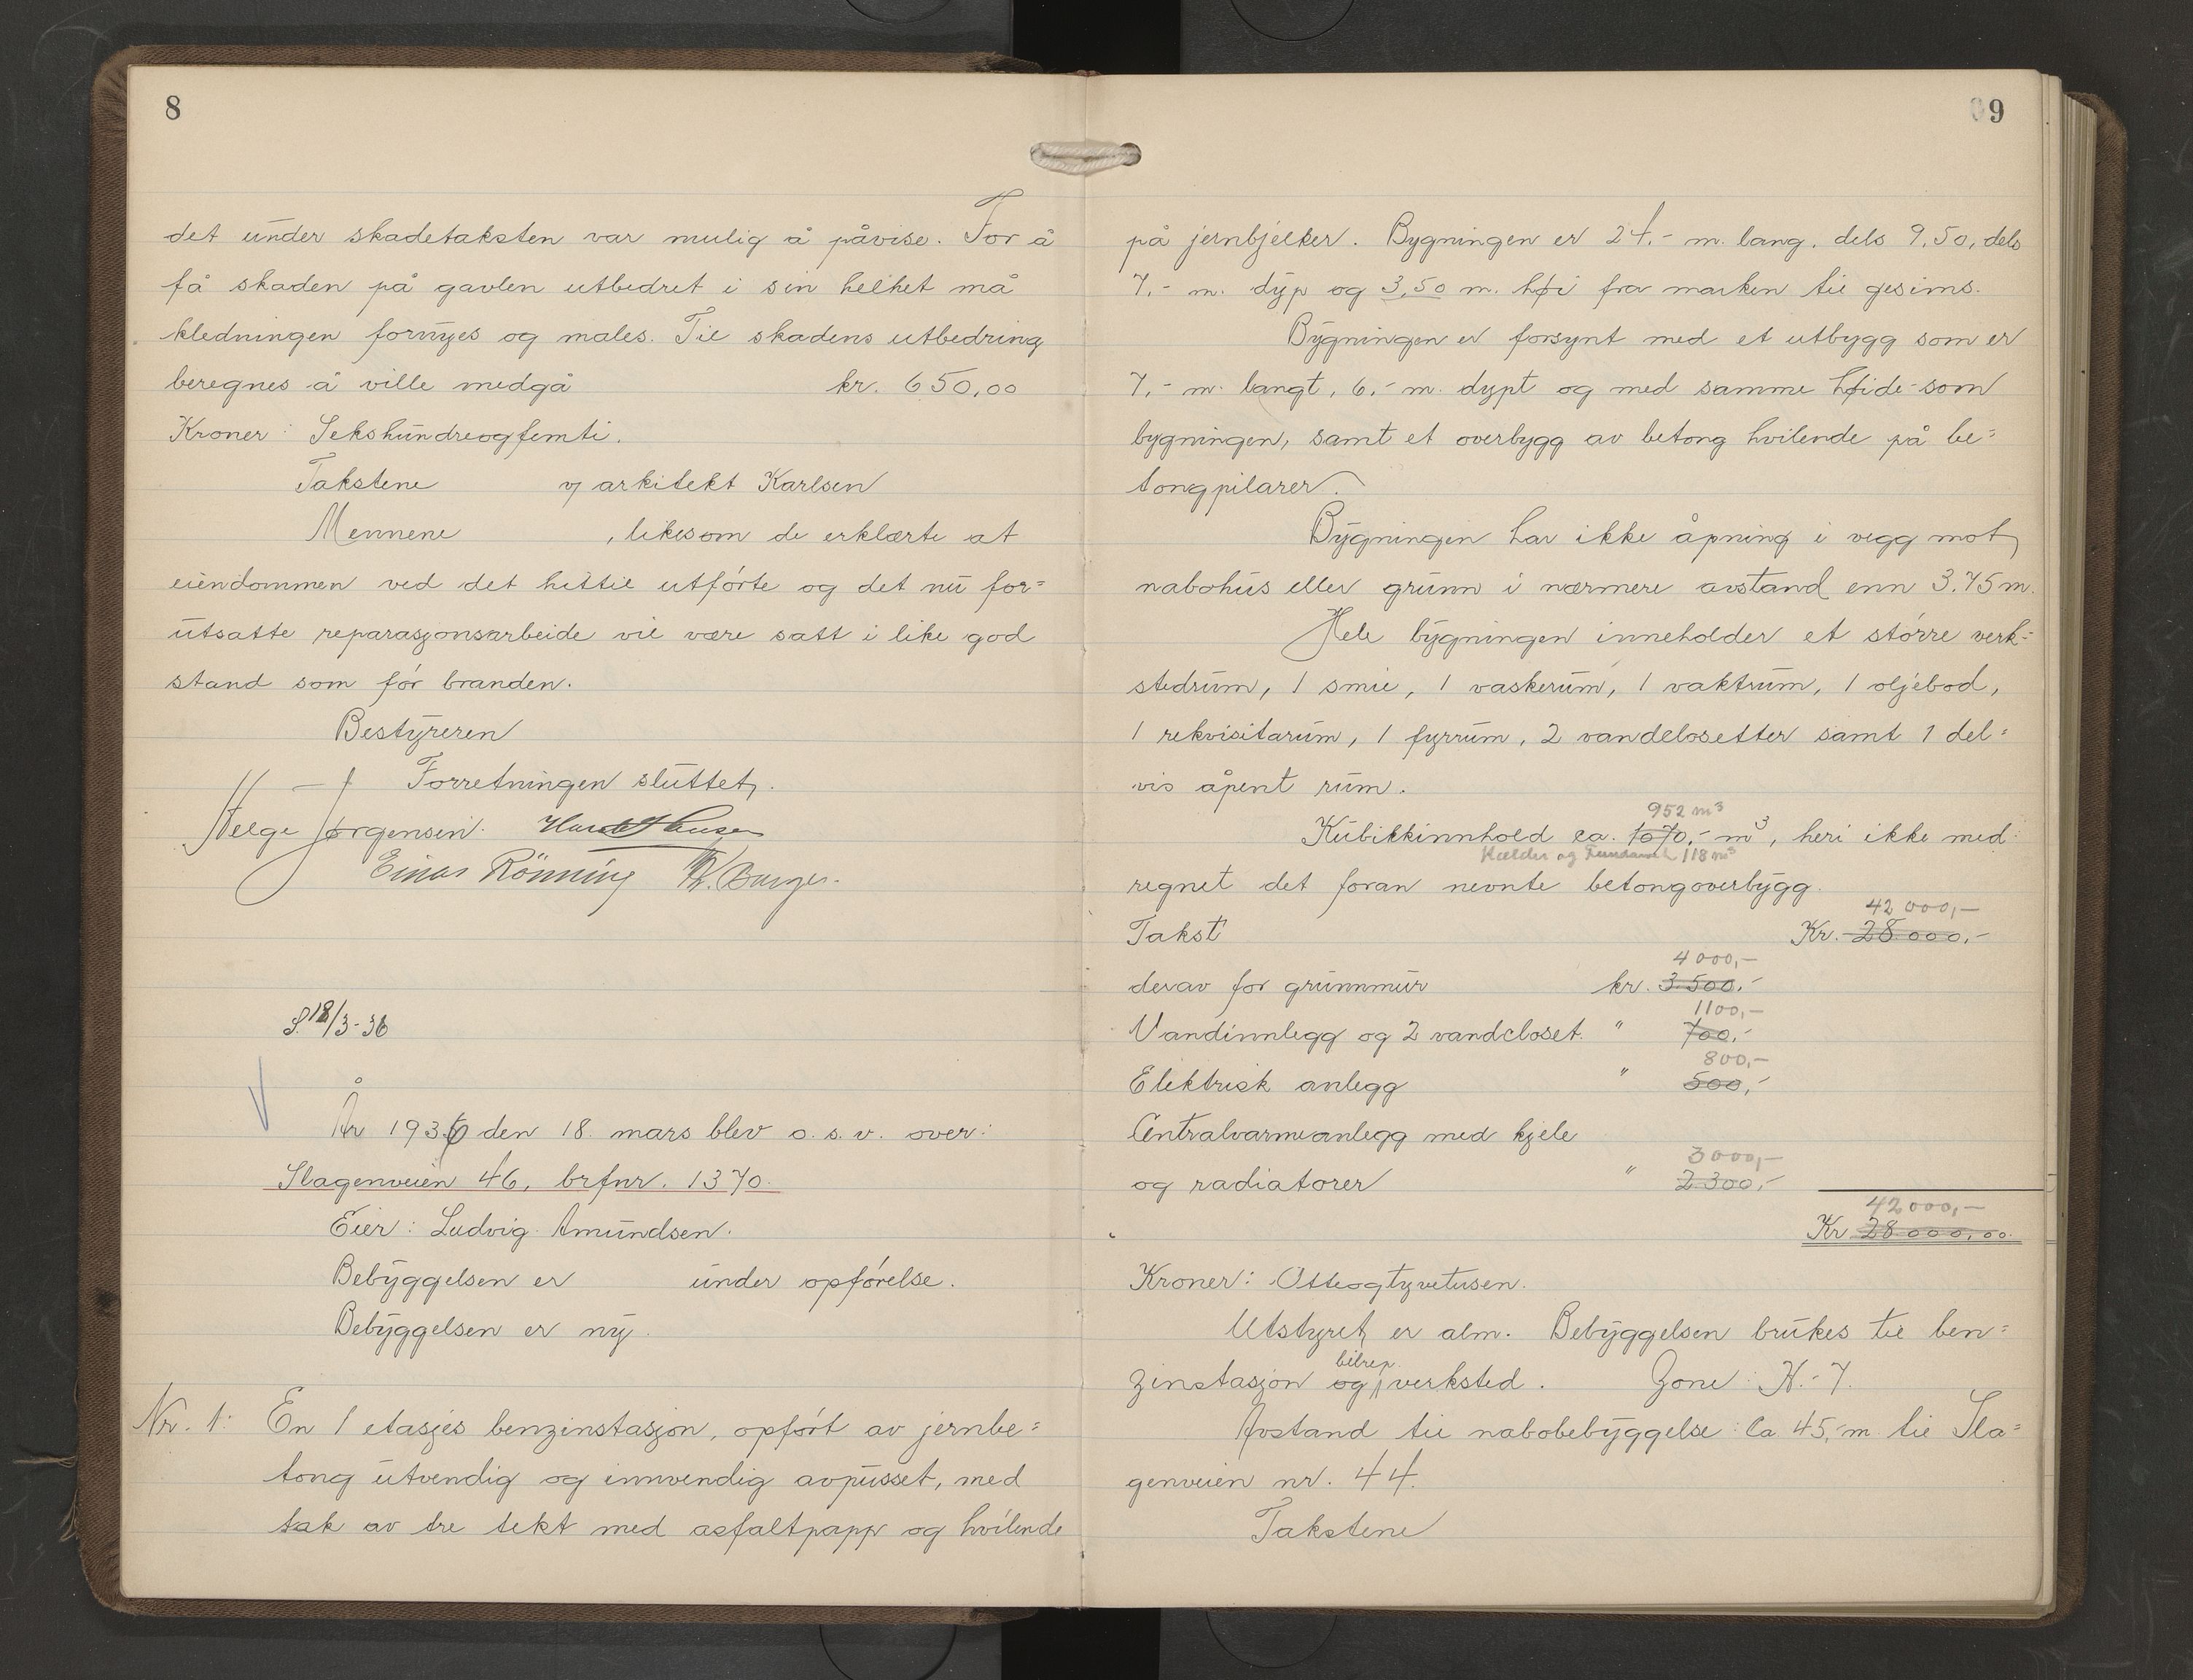 8
det under skadetaksten var mulig å påvise. For å
få skaden på gavlen utbedret i sin helhet må
kledningen fornyes og males. Til skadens utbedring
beregnes å ville medgå kr. 650,00
Kroner: Sekshundreogfemti.
Takstene v/ arkitekt Karlsen
Mennene , likesom de erklærte at
eiendommen ved det hittil utførte og det nu for=
utsatte reparasjonsarbeide vil være satt i like god
stand som før branden.
Bestyreren
Forretningen sluttet.
Helge Jørgensen.
Einar Rönning
S. 18/3-36
År 1936 den 18. mars blev o. s. v. over:
Slagenveien 46, brfnr. 1370.
Eier: Ludvig Amundsen.
Bebyggelsen er under opførelse.
Bebyggelsen er ny.
Nr. 1: En 1 etasjes benzinstasjon, opført av jernbe=
tong utvendig og innvendig avpusset, med
tak av tre tekt med asfaltpapp og hvilende
09
på jernbjelker. Bygningen er 24,- m. lang, dels 9,50, dels
7,- m. dyp og 3,50 m. høi fra marken til gesims.
Bygningen er forsynt med et utbygg som er
7,- m. langt, 6,- m. dypt og med samme høide som
bygningen, samt et overbygg av betong hvilende på be=
tongpilarer.
Bygningen har ikke åpning i vegg mot
nabohus eller grunn i nærmere avstand enn 3.75 m.
Hele bygningen inneholder et større verk=
stedrum, 1 smie, 1 vaskerum, 1 vaktrum, 1 oljebod,
1 rekvisitarum, 1 fyrrum, 2 vandclosetter samt 1 del=
vis åpent rum.
952 m³
Kubikkinnhold ca. 1070,- m³, heri ikke med=
Kjelder og Fundament 118 m³
regnet det foran nevnte betongoverbygg.
42 000,-
Takst Kr. 28 000,-
4000,-
derav for grunnmur kr. 3 500,-
1100,-
Vandinnlegg og 2 vandcloset. " 700,-
800,-
Elektrisk anlegg " 500,-
Centralvarmeanlegg med kjele
3000,-
og radiatorer " 2 300,-
42000,-
Kr 28 000,00.
Kroner: Otteogtyvetusen.
Utstyret er alm. Bebyggelsen brukes til ben=
bilrep.
zinstasjon og verksted. Zone: H.-7.
Avstand til nabobebyggelse: Ca 45,-m til Sla=
genveien nr. 44.
Takstene